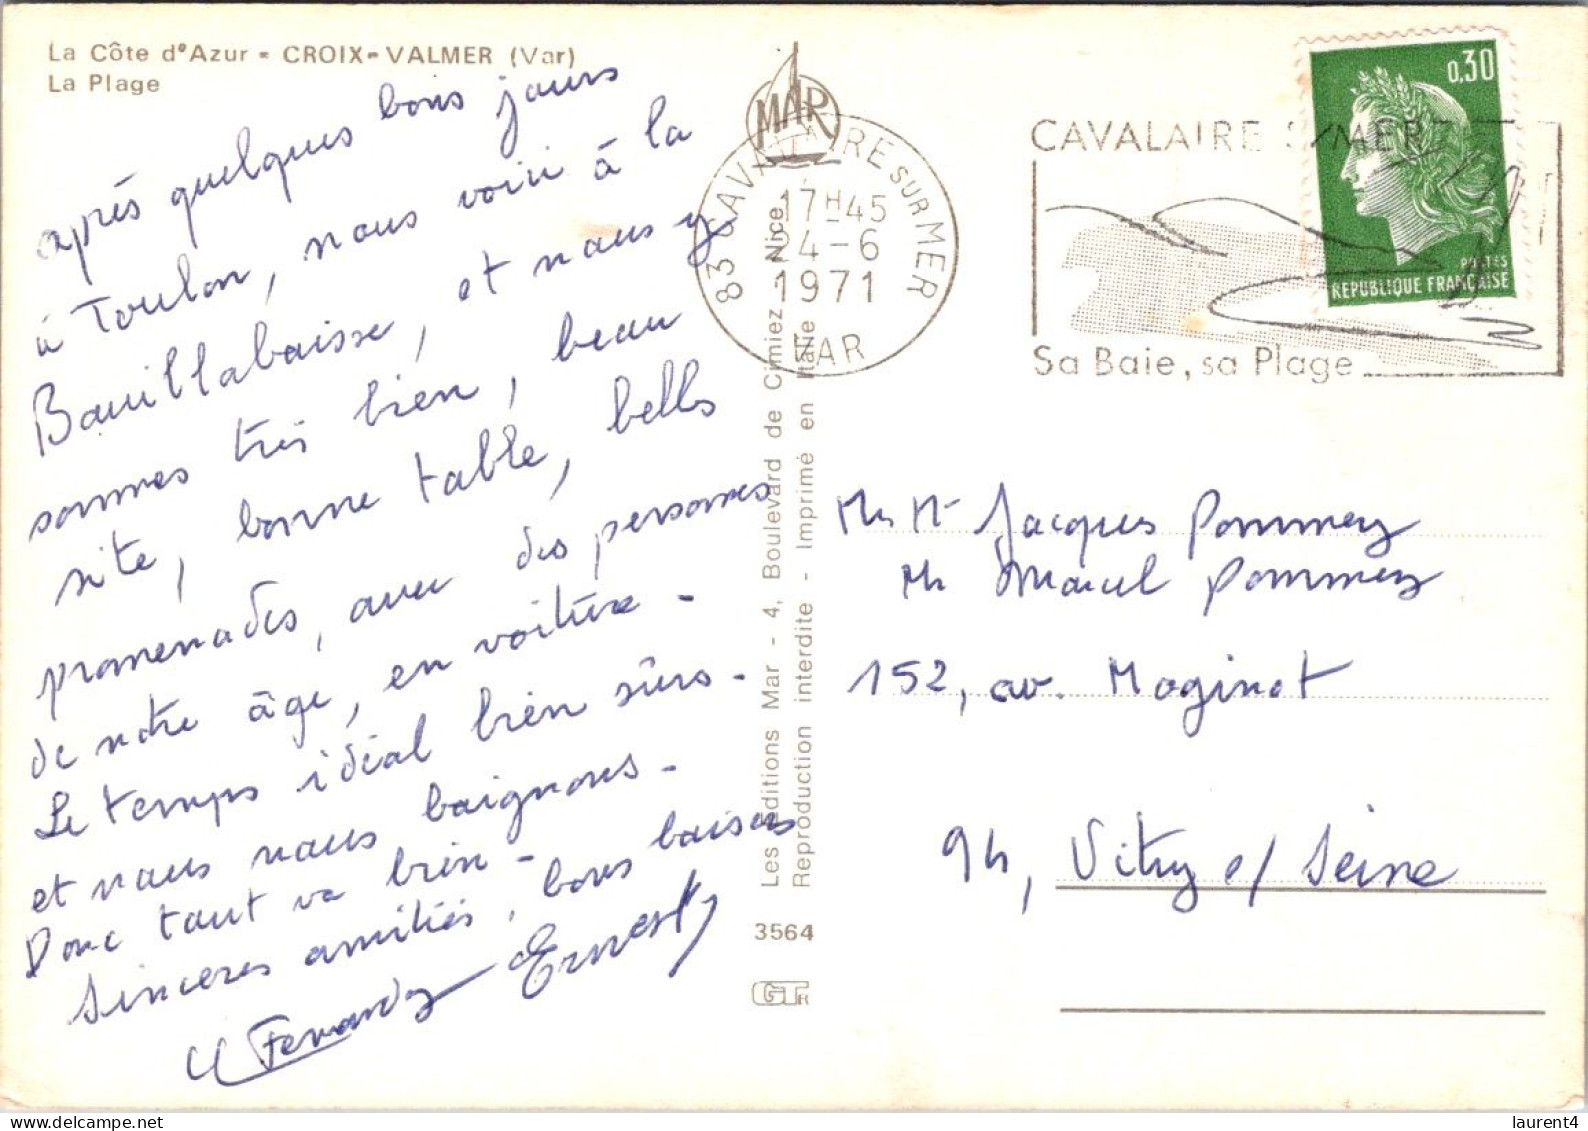 La Côte d'Azur - CROIX-VALMER (Var)
La Plage
après quelques bons jours
à Toulon, nous voici à la
Bouillabaisse, et nous y
sommes très bien, beau
site, bonne table, belles
promenades, avec des personnes
de notre âge, en voiture -
Le temps idéal bien sûr -
et nous nous baignons -
Donc tout va bien -
Sincères amitiés, bons baisers
Fernandy Ernest
MAR
83 CAVALAIRE SUR MER
17H45
24-6
1971
VAR
CAVALAIRE S/MER
Sa Baie, sa Plage
0,30
POSTES
REPUBLIQUE FRANÇAISE
Les éditions Mar - 4, Boulevard de Cimiez - Nice
Reproduction interdite - Imprimé en Italie
3564
GTR
Mr Mme Jacques Pommery
Mr Marcel Pommery
152, av. Maginot
94, Vitry s/ Seine
laurent4